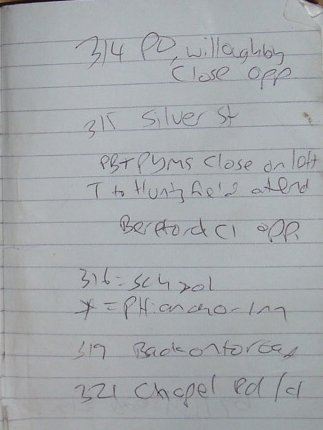 314 PO, willoughby
Close opp
315 Silver St
PB + Pyms Close on left
T to Huntsfield at end
Bereford Cl opp
316 = school
* = PH: anchor Inn
319 Back onto road
321 Chapel Rd